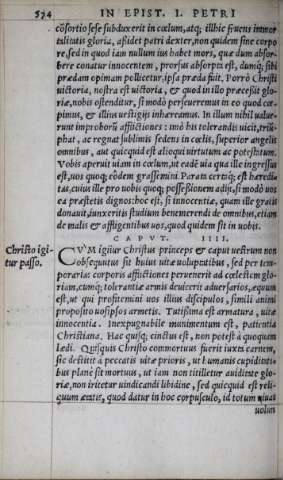 574 IN EPIST. I. PETRI
cōsortio sese subduxerit in cœlum, atq; illhic fruens immor
talitatis gloria, assidet patri dexter, non quidem sine corpo
re, sed in quod iam nullum ius habet mors, quæ dum absor-
bere conatur innocentem, prorsus absorpta est, dumq; sibi
prædam opimam pollicetur, ipsa præda fuit. Porrò Christi
uictoria, nostra est uictoria, & quod in illo præcessit glo-
riæ, nobis ostenditur, si modò perseuremus in eo quod cœ-
pimus, & illius uestigijs inhæreamus. In illum nihil ualue-
runt improborū afflictiones: imò his tolerandis uicit, triū-
phat, ac regnat sublimis sedens in cœlis, superior angelis
omnibus, aut quicquid est alioqui uirtutum ac potestatum.
Vobis aperuit uiam in cœlum, ut eadē uia qua ille ingressus
est, uos quoq; eòdem grassemini. Parata certè q; est hæredi-
tas, cuius ille pro uobis quoq; possessionem adijt, si modò uos
ea præstetis dignos: hoc est, si innocentia, quam ille gratis
donauit, iunxeritis studium benemerendi de omnibus, etiam
de malis & affligentibus uos, quod quidem sit in uobis.
CAPVT. IIII.
Christo igi-
tur passo.
CVM igitur Christus princeps & caput uestrum non
obsequutus sit huius uitæ uoluptatibus, sed per tem-
porarias corporis afflictiones peruenerit ad cœlestem glo-
riam, cumq; tolerantia armis deuicerit aduersarios, æquum
est, ut qui profitemini uos illius discipulos, simili animi
proposito uosipsos armetis. Tutissima est armatura, uitæ
innocentia. Inexpugnabile munimentum est, patientia
Christiana. Hac quisq; cinctus est, non potest à quoquam
lædi. Quisquis Christo commortuus fuerit iuxta carnem,
sic destitit à peccatis uitæ prioris, ut humanis cupiditati-
bus planè sit mortuus, ut iam non titilletur auiditate glo-
riæ, non iritetur uindicandi libidine, sed quicquid est reli-
quum ætatis, quod datur in hoc corpusculo, id totum uiuat
uolun